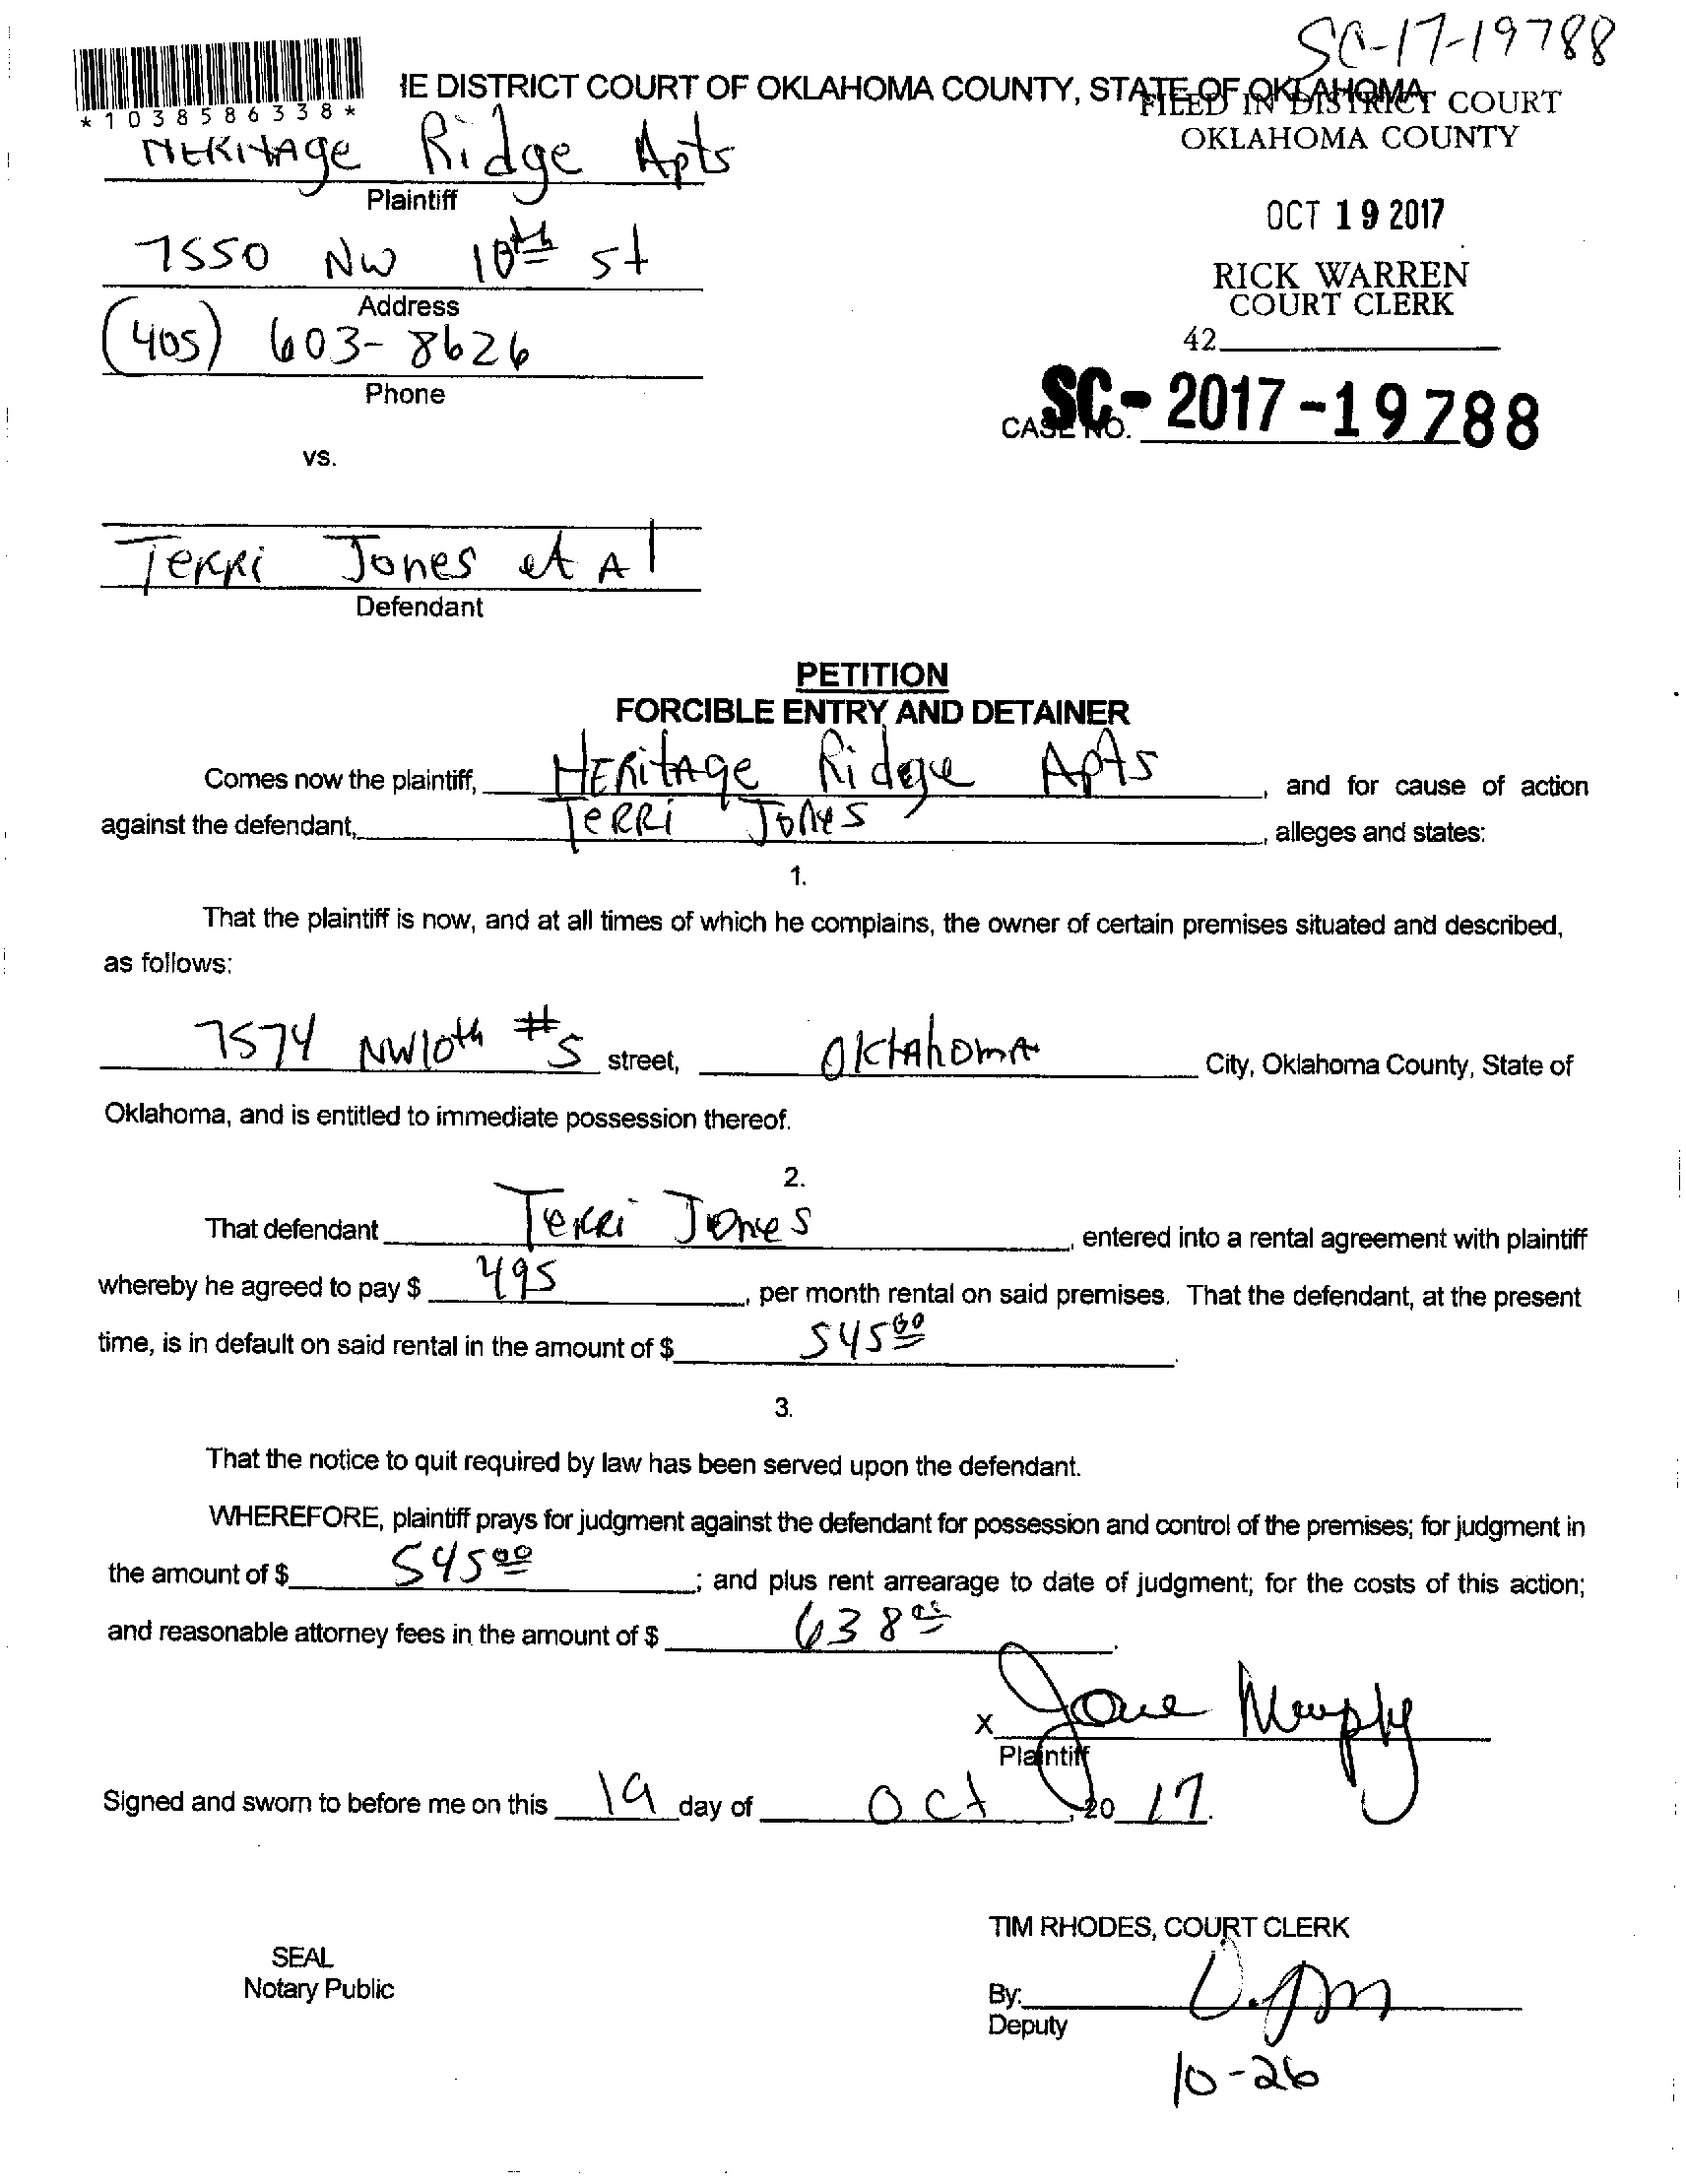 SC-17-19788
IE DISTRICT COURT OF OKLAHOMA COUNTY, STATE OF OKLAHOMA
*1038586338*
FILED IN DISTRICT COURT
OKLAHOMA COUNTY
Heritage Ridge Apts
Plaintiff
OCT 19 2017
7550 NW 10th st
Address
RICK WARREN
COURT CLERK
42
(405) 603-8626
Phone
CASE NO. SC-2017-19788
vs.
Terri Jones et Al
Defendant
PETITION
FORCIBLE ENTRY AND DETAINER
Comes now the plaintiff, Heritage Ridge Apts, and for cause of action
against the defendant, Terri Jones, alleges and states:
1.
That the plaintiff is now, and at all times of which he complains, the owner of certain premises situated and described,
as follows:
7574 NW10th #5 street, Oklahoma City, Oklahoma County, State of
Oklahoma, and is entitled to immediate possession thereof.
2.
That defendant Terri Jones, entered into a rental agreement with plaintiff
whereby he agreed to pay $ 495, per month rental on said premises. That the defendant, at the present
time, is in default on said rental in the amount of $ 545 00.
3.
That the notice to quit required by law has been served upon the defendant.
WHEREFORE, plaintiff prays for judgment against the defendant for possession and control of the premises; for judgment in
the amount of $ 545 00; and plus rent arrearage to date of judgment; for the costs of this action;
and reasonable attorney fees in the amount of $ 638.
X Jane Murphy
Plaintiff
Signed and sworn to before me on this 19 day of Oct, 20 17.
TIM RHODES, COURT CLERK
SEAL
Notary Public
By:
Deputy
10-26